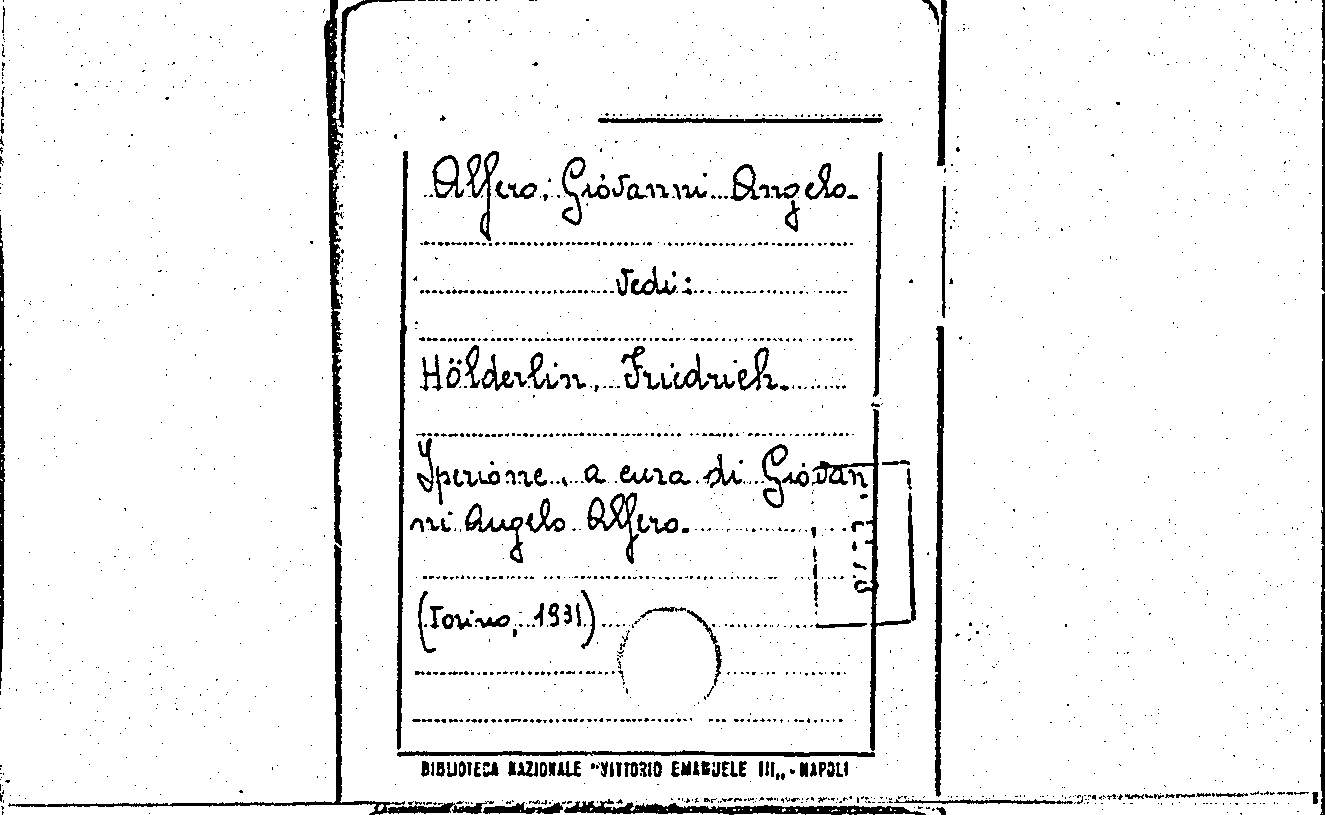 Alfero, Giovanni Angelo.
Vedi:
Hölderlin, Friedrich.
Iperione, a cura di Giovan
ni Angelo Alfero.
(Torino, 1931)
BIBLIOTECA NAZIONALE "VITTORIO EMANUELE III„ - NAPOLI